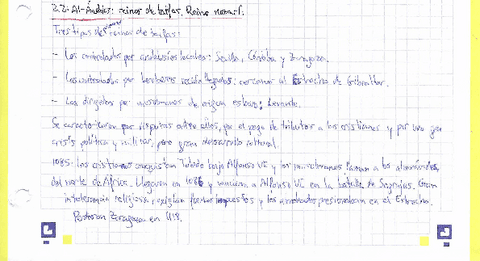 2.2: Al-Ándalus: reinos de taifas. Reino nazarí.
Tres tipos de reinos de taifas:
- Los controlados por andalusíes locales: Sevilla, Córdoba y Zaragoza.
- Los controlados por bereberes recién llegados: cercanos al Estrecho de Gibraltar.
- Los dirigidos por musulmanes de origen eslavo: Levante.
Se caracterizaron por disputas entre ellos, por el pago de tributos a los cristianos y por una gran
crisis política y militar, pero gran desarrollo cultural.
1085: Los cristianos conquistan Toledo bajo Alfonso VI y los musulmanes llaman a los almorávides
del norte de África. Llegaron en 1086 y vencieron a Alfonso VI en la batalla de Sagrajas. Gran
intolerancia religiosa, exigían fuertes impuestos y los presionaban en el Estrecho.
Perdieron Zaragoza en 1118.